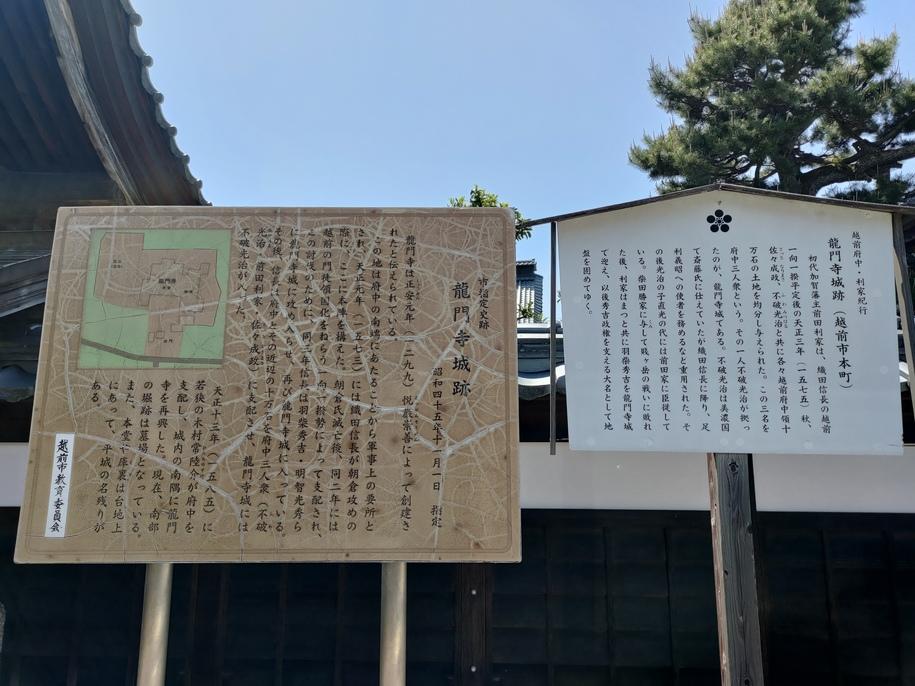 市指定史跡
龍門寺城跡
昭和四十五年十一月一日 指定
龍門寺は正安元年(一二九九)悦巌崇善によって創建さ
れたと伝えられている。
この地は府中の南端にあたることから軍事上の要所と
され、天正元年(一五七三)には織田信長が朝倉攻めの
際に、ここに本陣を構えた。朝倉氏滅亡後、同二年には
越前の門徒領国化をねらう一向一揆勢によって支配され、
この討伐のため信長は同三年、羽柴秀吉・明智光秀ら
に龍門寺城を攻略させ、再び龍門寺城に入っている。
その後、信長は府中とその近辺の十万石を府中三人衆(不破
光治・前田利家・佐々成政)に支配させ、龍門寺城には
不破光治が入った。
天正十三年(一五八五)に
若狭の木村常陸介が府中を
支配し、城内の南隅に龍門
寺を再興した。現在、南部
の堀跡は墓場となっている。
また、本堂や庫裏は台地上
にあって、平城の名残りが
ある。
越前市教育委員会
龍門寺
越前府中・利家紀行
龍門寺城跡(越前市本町)
初代加賀藩主前田利家は、織田信長の越前
一向一揆平定後の天正三年(一五七五)秋、
佐々成政、不破光治と共に各々越前府中領十
万石の土地を均分し与えられた。この三名を
府中三人衆という。その一人不破光治が拠っ
たのが、龍門寺城である。不破光治は美濃国
で斎藤氏に仕えていたが織田信長に降り、足
利義昭への使者を務めるなど重用された。そ
の後光治の子直光は前田家に臣従して
いる。柴田勝家に与して賤ヶ岳の戦いに敗れ
た後、利家はまつと共に羽柴秀吉を龍門寺城
で迎え、以後秀吉政権を支える大名として地
盤を固めてゆく。